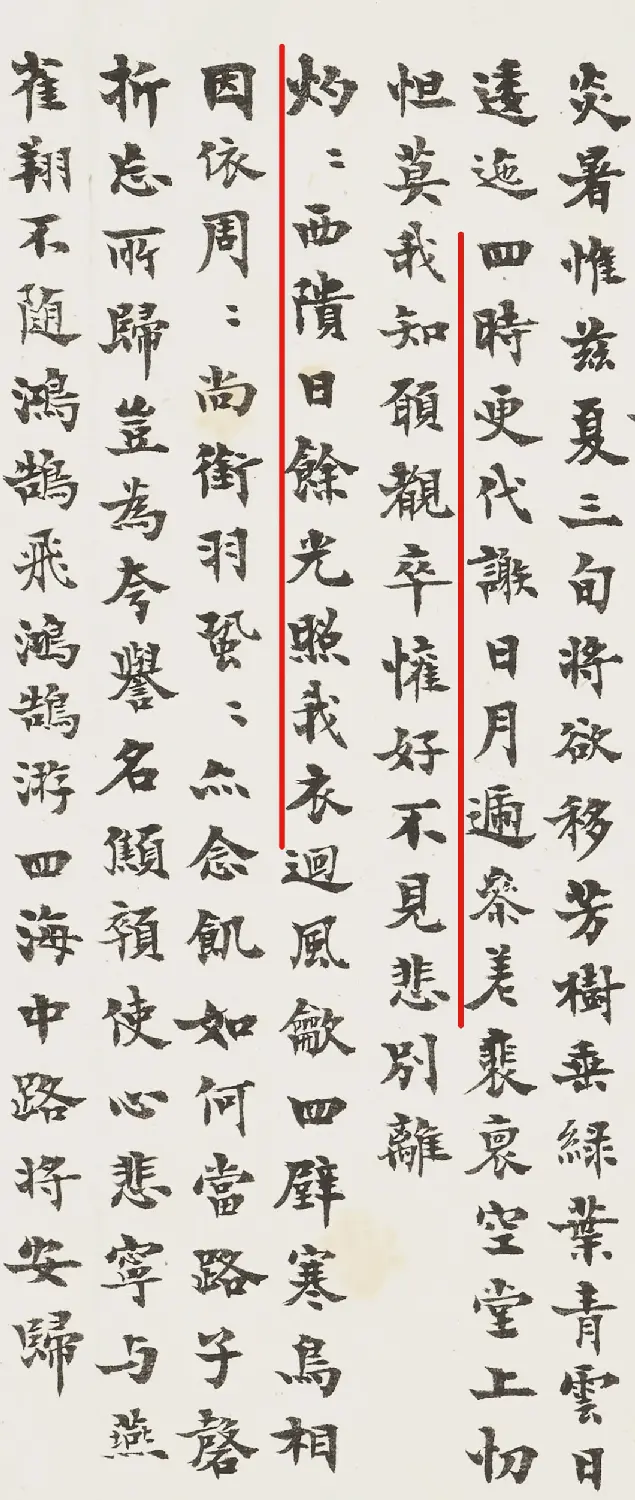 炎暑惟兹夏三旬将欲移芳樹垂緑葉青雲日
逶迤四時更代謝日月遞参差裴裛空堂上忉
怛莫我知願覩卒懽好不見悲別離
灼〻西隤日餘光照我衣迴風歙四壁寒鳥相
因依周〻尚銜羽蛩〻亦念飢如何當路子磬
折忘所歸豈為夸譽名顦顇使心悲寧与燕
雀翔不随鴻鵠飛鴻鵠游四海中路将安歸